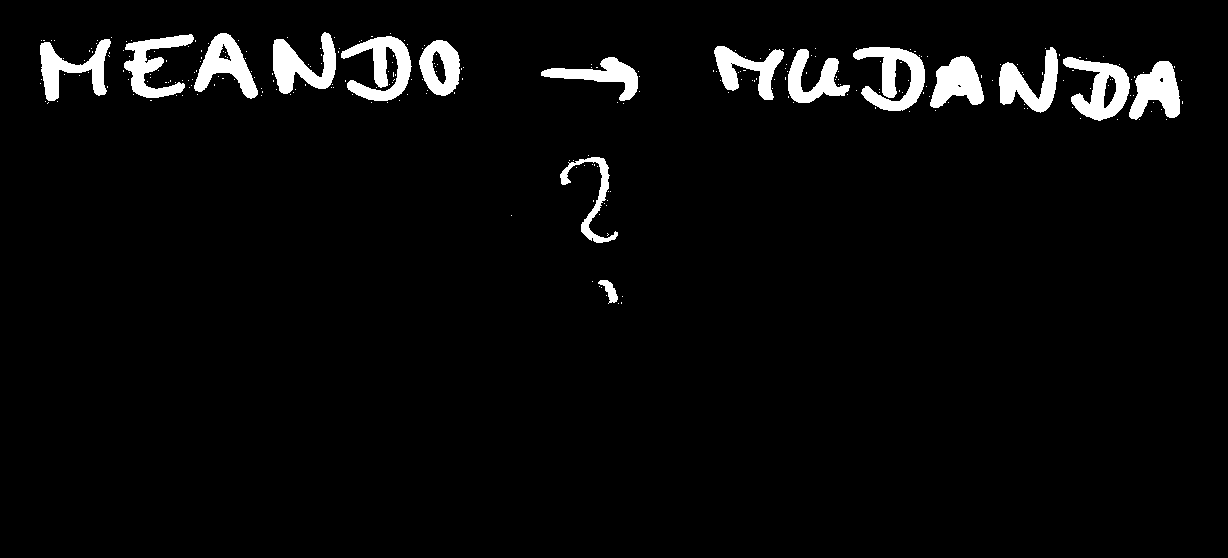 MEANDO → MUDANDA
?